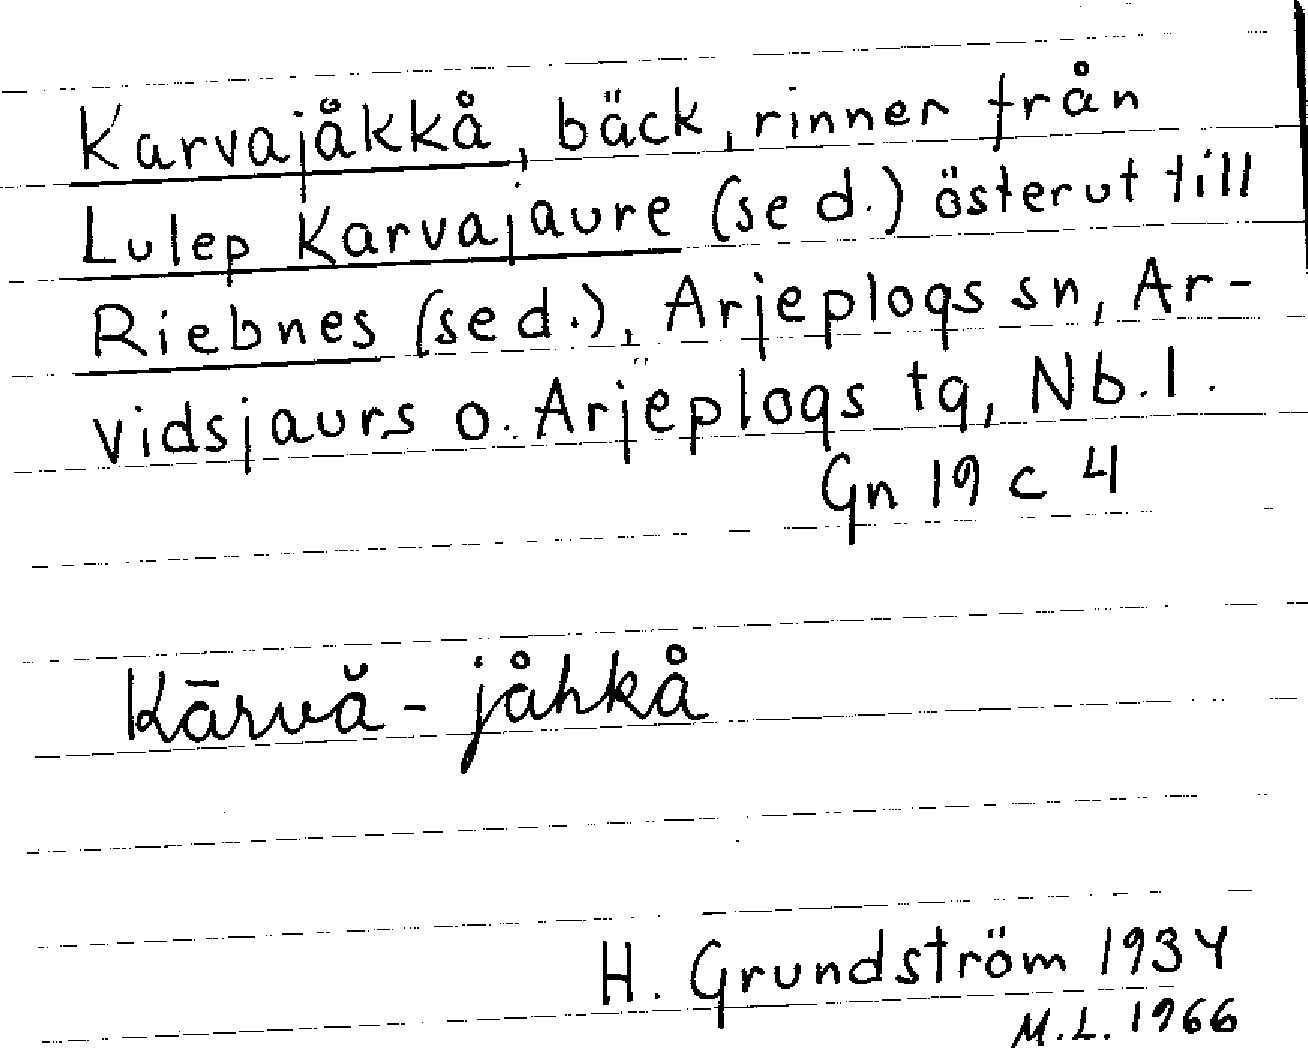 Karvajåkkå, bäck, rinner från
Lulep Karvajaure (se d.) österut till
Riebnes (se d.), Arjeplogs sn, Ar-
vidsjaurs o. Arjeplogs tg, Nb. l.
Gn 19 c 4
Kārvă-jåhkå
H. Grundström 1934
M.L. 1966